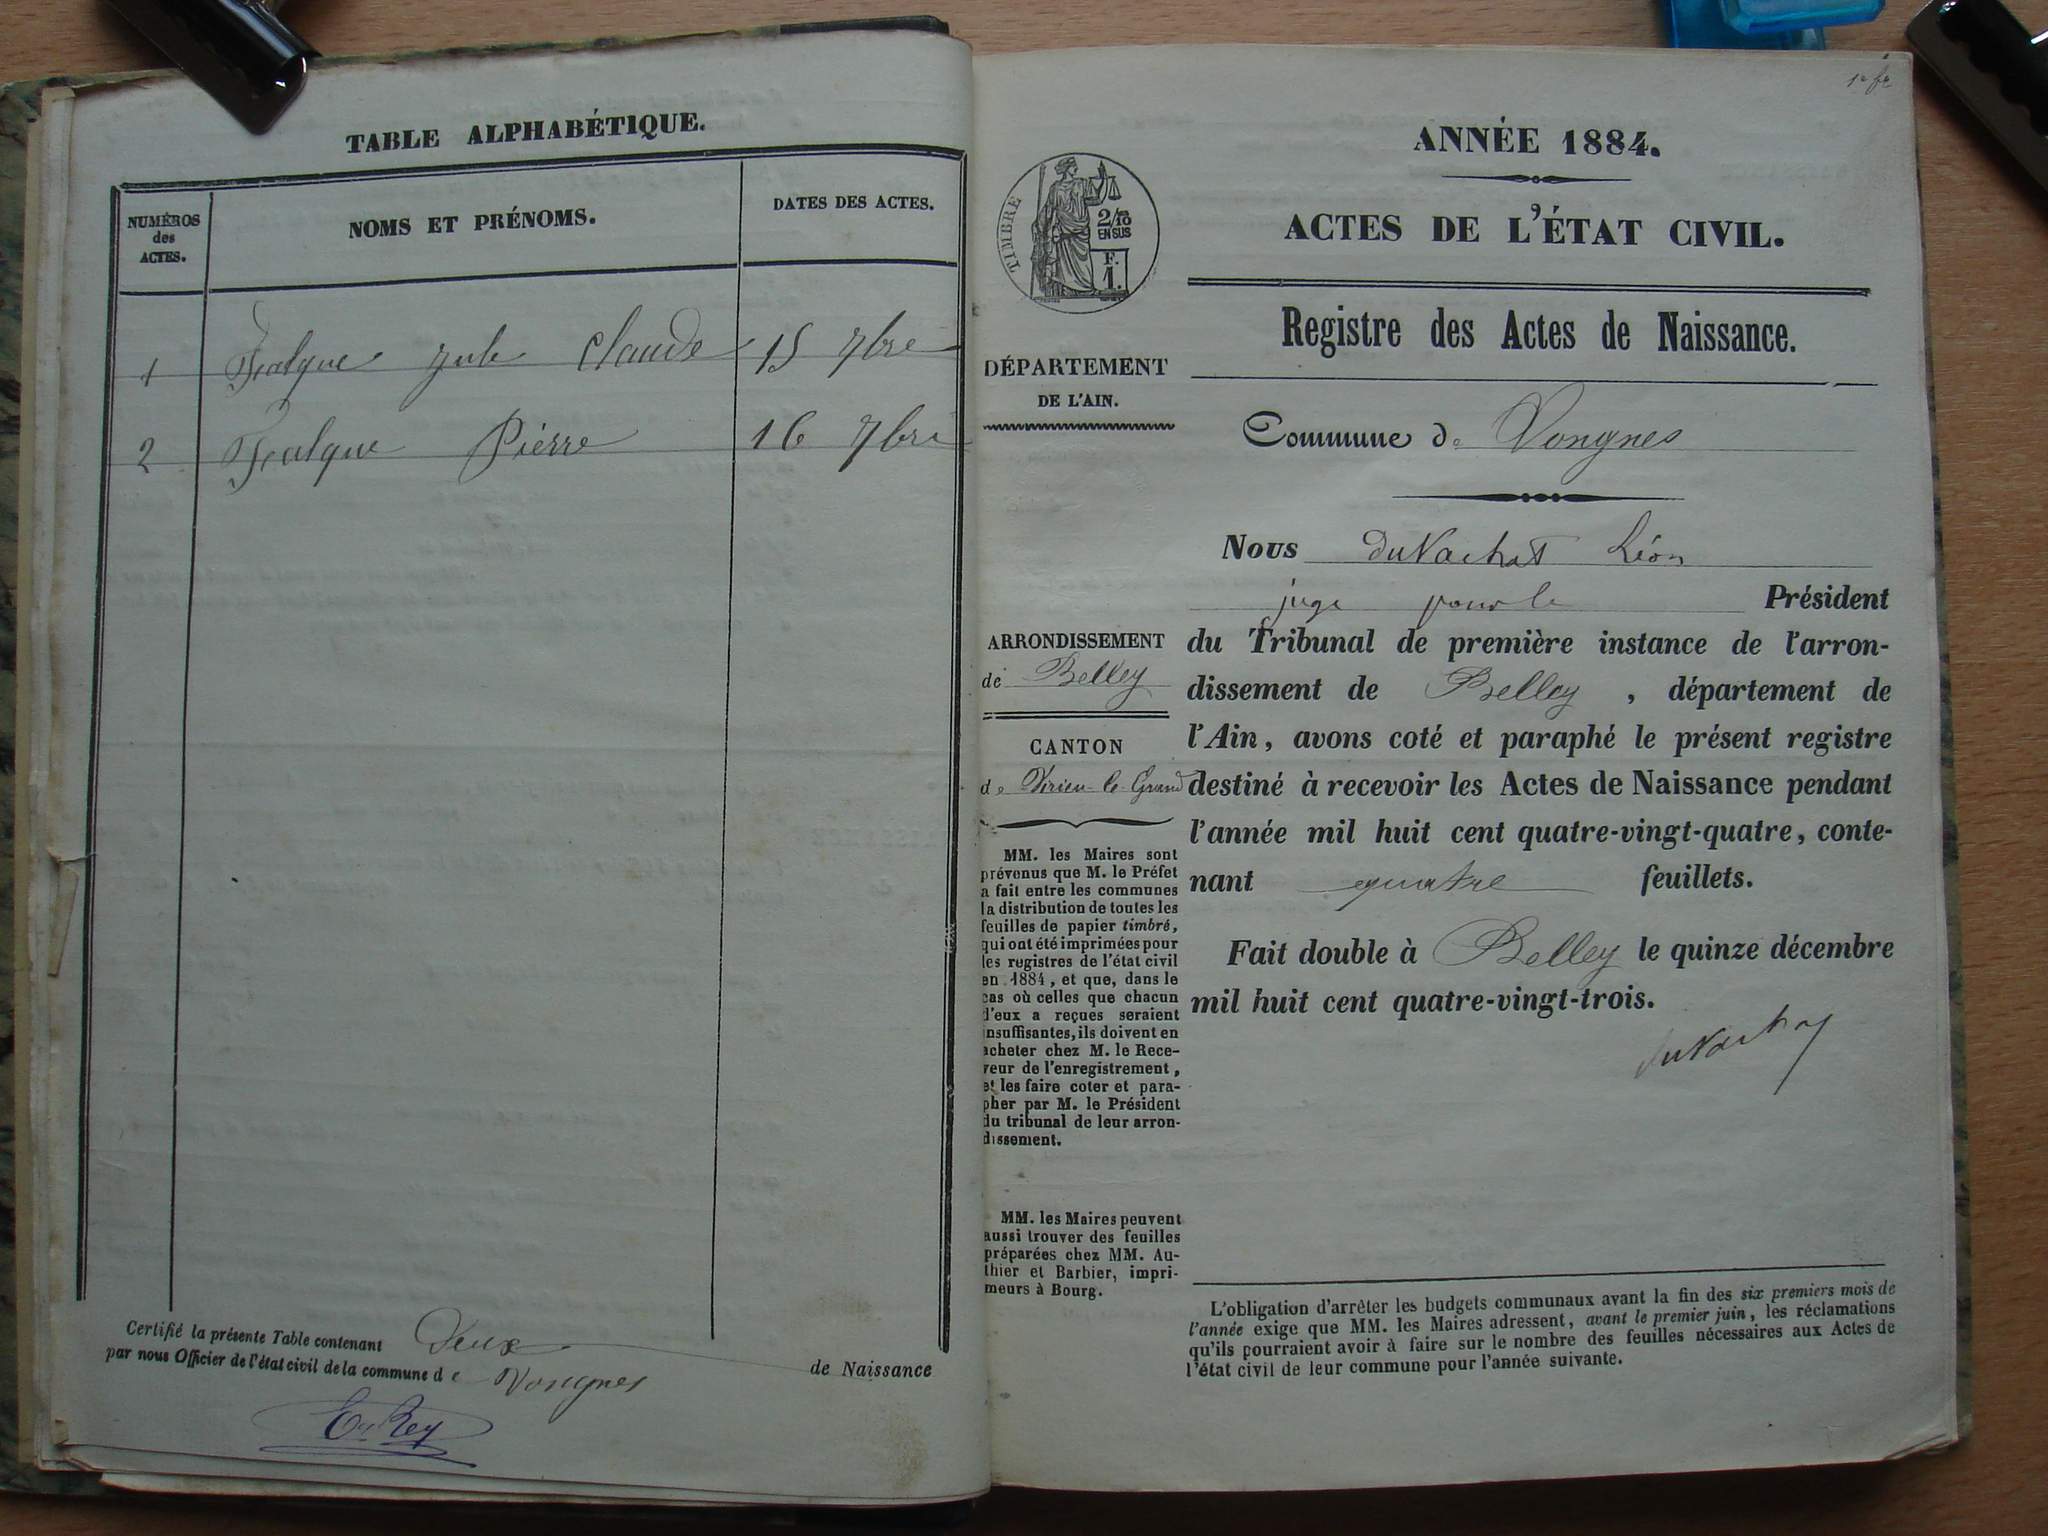 TABLE ALPHABÉTIQUE.
NUMÉROS
des
ACTES.
NOMS ET PRÉNOMS.
DATES DES ACTES.
1 Falque Jule Claude 15 7bre
2 Falque Pierre 16 7bre
Certifié la présente Table contenant Deux de Naissance
par nous Officier de l'état civil de la commune de Vongnes
Rey
1er ft
TIMBRE
2/10
EN SUS
F.
1.
DÉPARTEMENT
DE L'AIN.
ARRONDISSEMENT
de Belley
CANTON
de Virieu-le-Grand
MM. les Maires sont
prévenus que M. le Préfet
a fait entre les communes
la distribution de toutes les
feuilles de papier timbré,
qui ont été imprimées pour
les registres de l'état civil
en 1884, et que, dans le
cas où celles que chacun
d'eux a reçues seraient
insuffisantes, ils doivent en
acheter chez M. le Rece-
veur de l'enregistrement,
et les faire coter et para-
pher par M. le Président
du tribunal de leur arron-
dissement.
MM. les Maires peuvent
aussi trouver des feuilles
préparées chez MM. Au-
thier et Barbier, impri-
meurs à Bourg.
ANNÉE 1884.
ACTES DE L'ÉTAT CIVIL.
Registre des Actes de Naissance.
Commune de Vongnes
Nous DuVachat Léon
juge pour le Président
du Tribunal de première instance de l'arron-
dissement de Belley, département de
l'Ain, avons coté et paraphé le présent registre
destiné à recevoir les Actes de Naissance pendant
l'année mil huit cent quatre-vingt-quatre, conte-
nant quatre feuillets.
Fait double à Belley le quinze décembre
mil huit cent quatre-vingt-trois.
DuVachat
L'obligation d'arrêter les budgets communaux avant la fin des six premiers mois de
l'année exige que MM. les Maires adressent, avant le premier juin, les réclamations
qu'ils pourraient avoir à faire sur le nombre des feuilles nécessaires aux Actes de
l'état civil de leur commune pour l'année suivante.